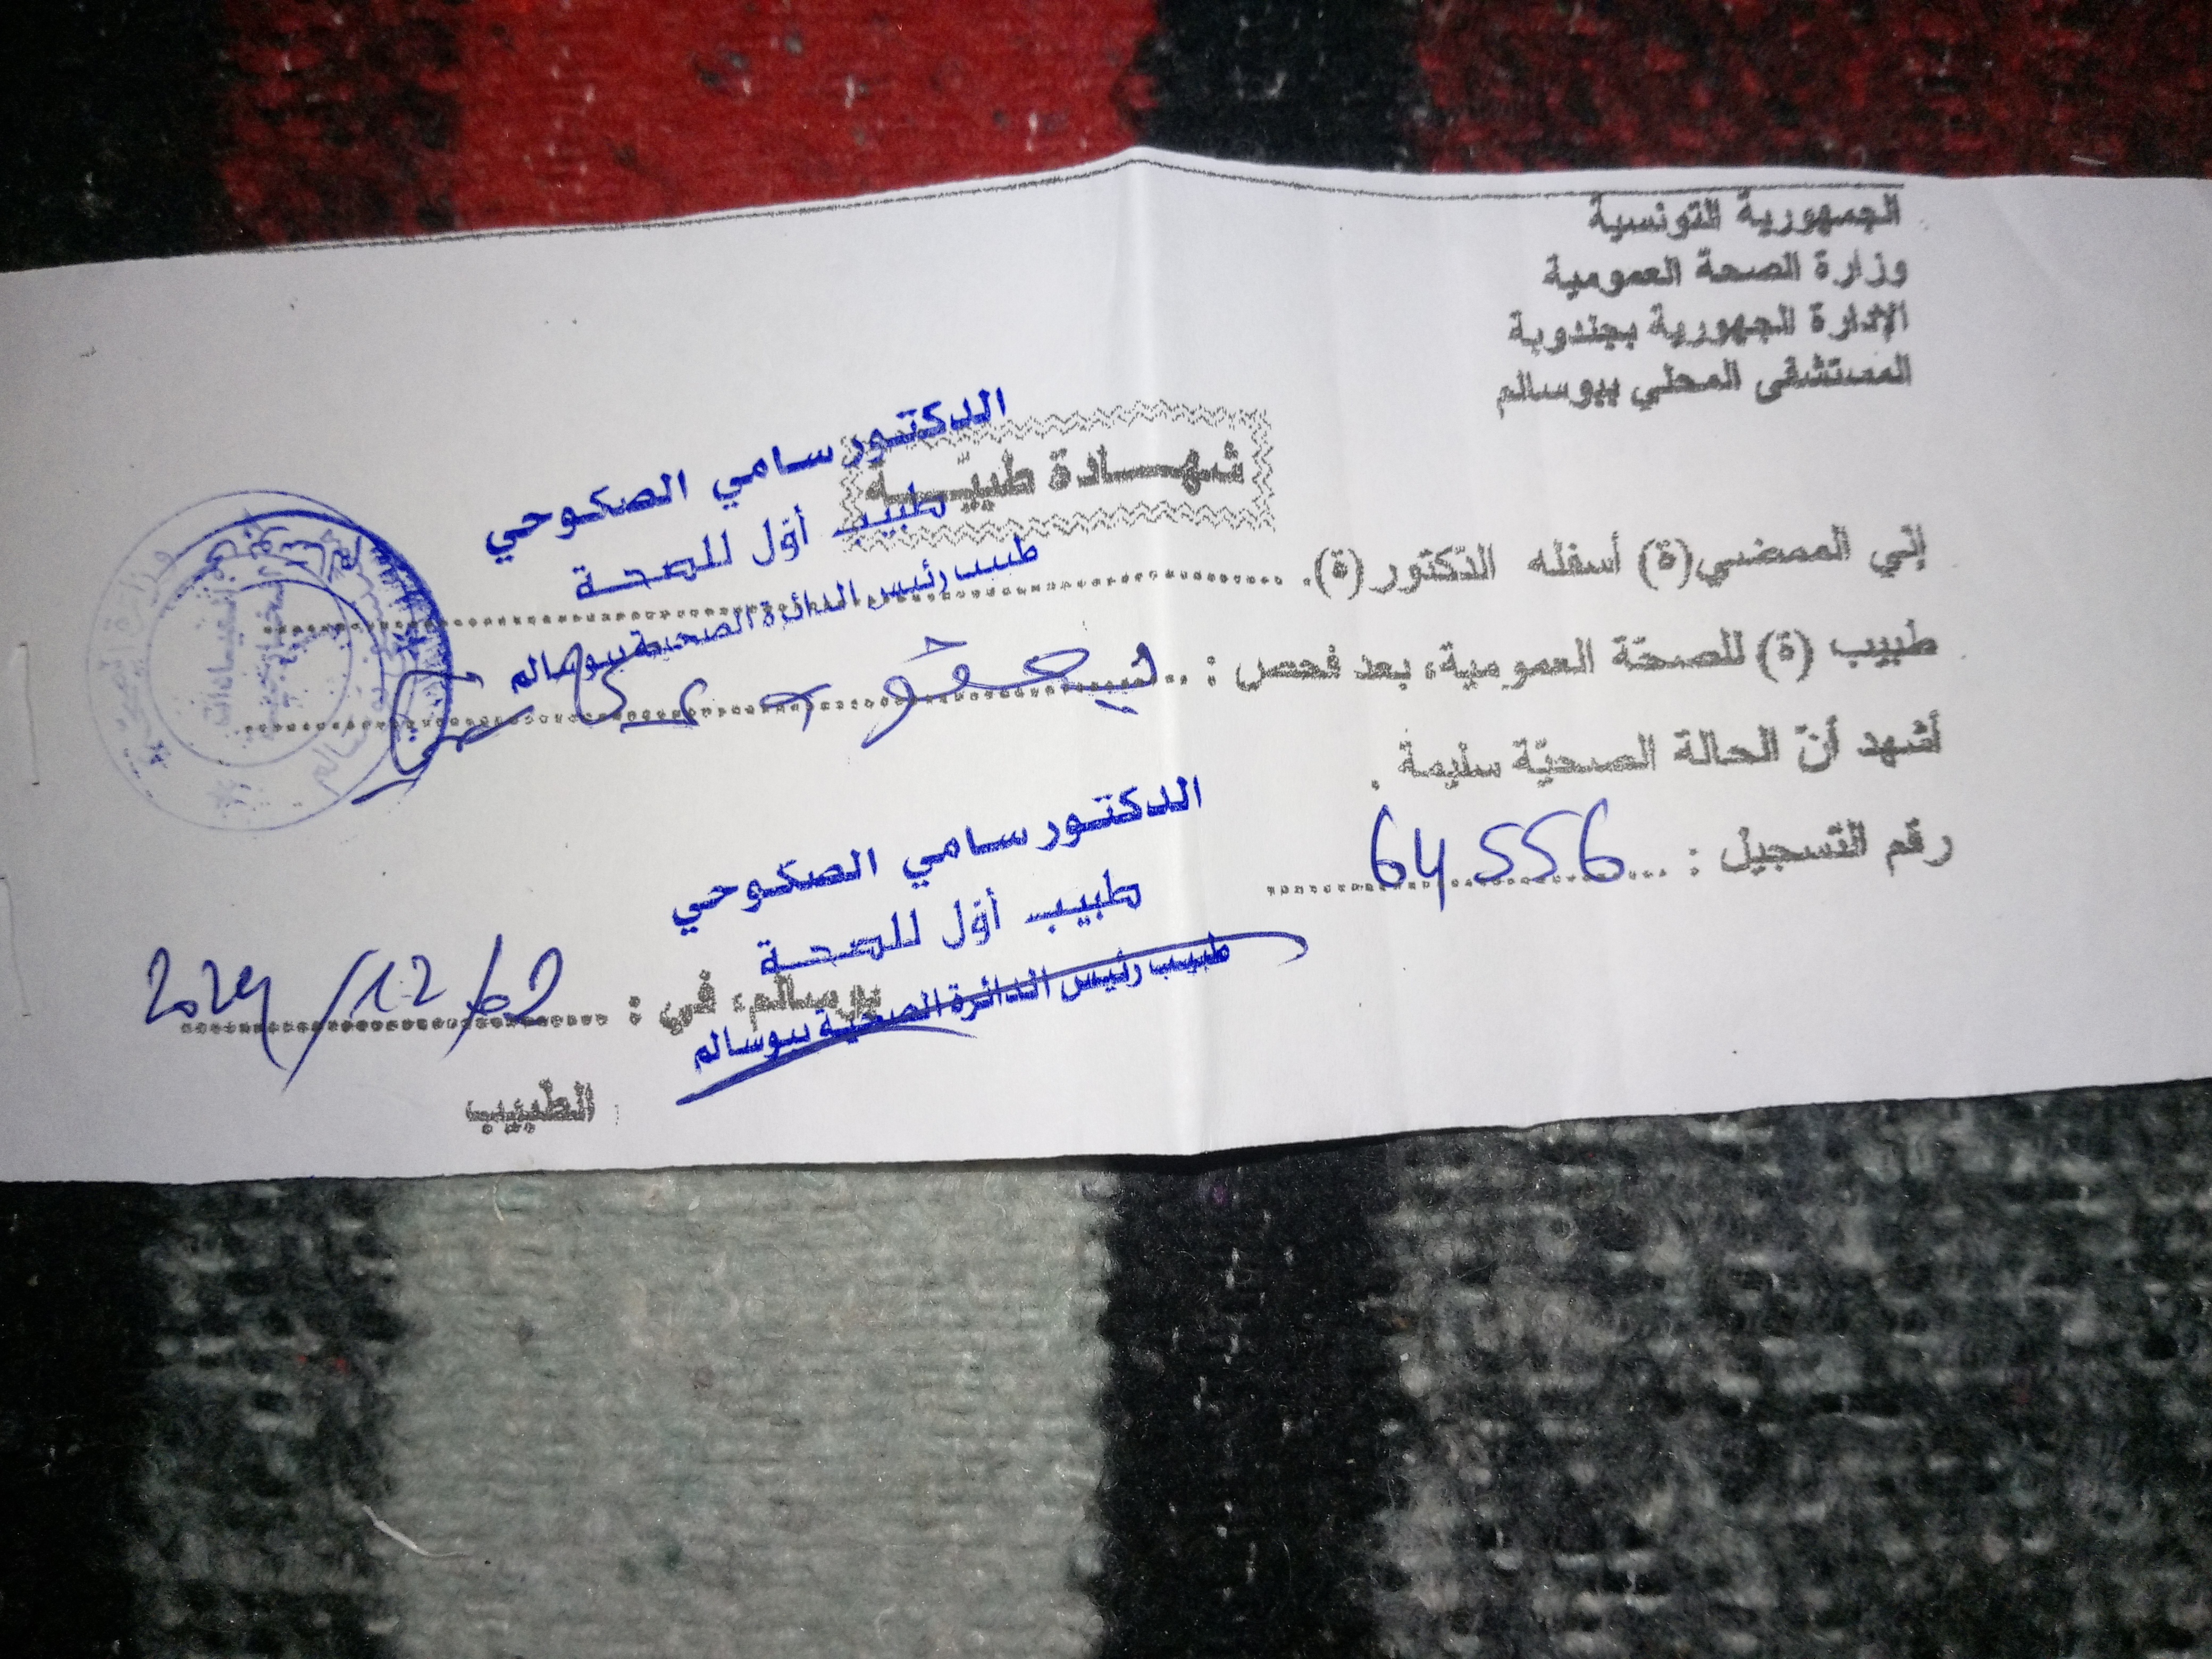 الجمهورية التونسية
وزارة الصحة العمومية
الإدارة الجهورية بجندوبة
المستشفى المحلي ببوسالم
شهــــادة طبيّــــية
الدكتور سامي الصكوحي
طبيب أوّل للصحة
طبيب رئيس الدائرة الصحية ببوسالم
إنّي الممضي(ة) أسفله الدّكتور(ة).
طبيب (ة) للصحّة العمومية، بعد فحص :
أشهد أنّ الحالة الصحيّة سليمة .
رقم التّسجيل : 64556
الدكتور سامي الصكوحي
طبيب أوّل للصحة
طبيب رئيس الدائرة الصحية ببوسالم
بوسالم، في : 2024/12/
الطّبيب